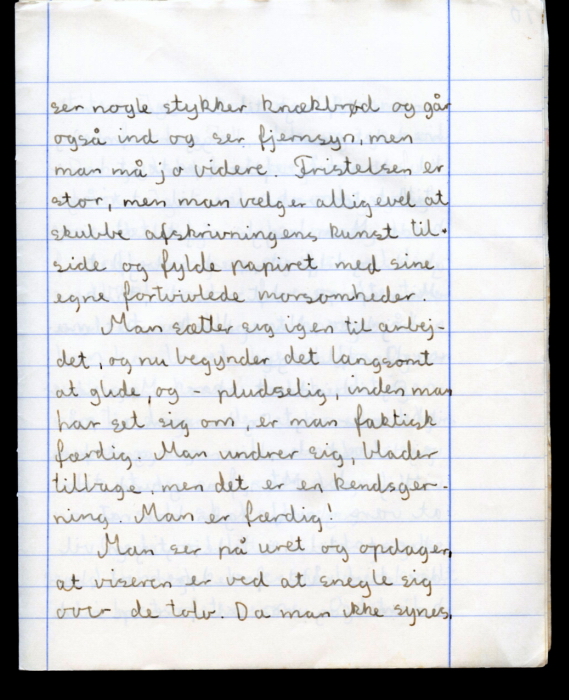 ser nogle stykker knækbrød og går
også ind og ser fjernsyn, men
man må jo videre. Fristelsen er
stor, men man vælger alligevel at
skubbe afskrivningens kunst til-
side og fylde papiret med sine
egne fortvivlede morsomheder.
Man sætter sig igen til arbej-
det, og nu begynder det langsomt
at glide, og - pludselig, inden man
har set sig om, er man faktisk
færdig. Man undrer sig, blader
tilbage, men det er en kendsger-
ning. Man er færdig!
Man ser på uret og opdager,
at viseren er ved at snegle sig
over de tolv. Da man ikke synes,